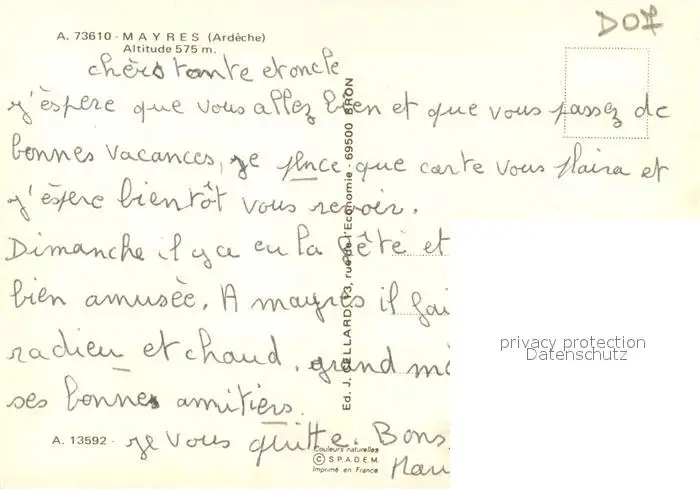 DOF
A. 73610 - MAYRES (Ardèche)
Altitude 575 m.
chèrs tante et oncle
j'èspere que vous allez bien et que vous passez de
bonnes vacances, je pence que carte vous plaira et
j'éspere bientôt vous revoir.
Dimanche il y a eu la fête et
bien amusée. A mayres il fai
radieu et chaud. grand mè
ses bonnes amitiers.
A. 13592 - je vous quitte. Bons
Couleurs naturelles
© S.P.A.D.E.M.
Imprimé en France
Ed. J. CELLARD, 13, rue de l'Economie - 69500 BRON
privacy protection
Datenschutz